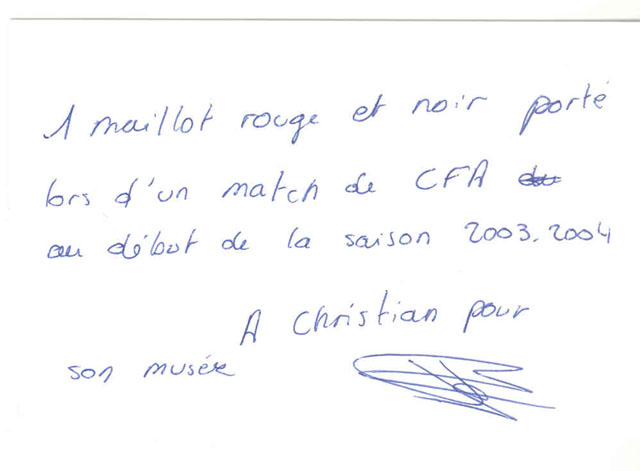 1 maillot rouge et noir porté
lors d'un match de CFA du
au début de la saison 2003.2004
A Christian pour
son musée